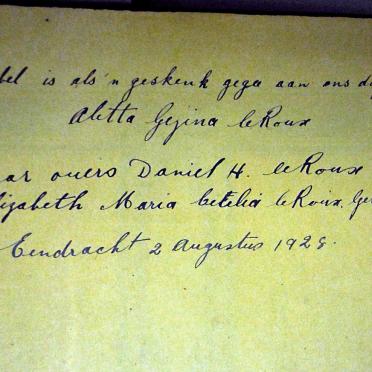 bel is als 'n geskenk gega aan ons
Aletta Gejina leRoux
ar ouers Daniel H. leRoux
lizabeth Maria Cecelia leRoux,
Eendracht 2 Augustus 1928.